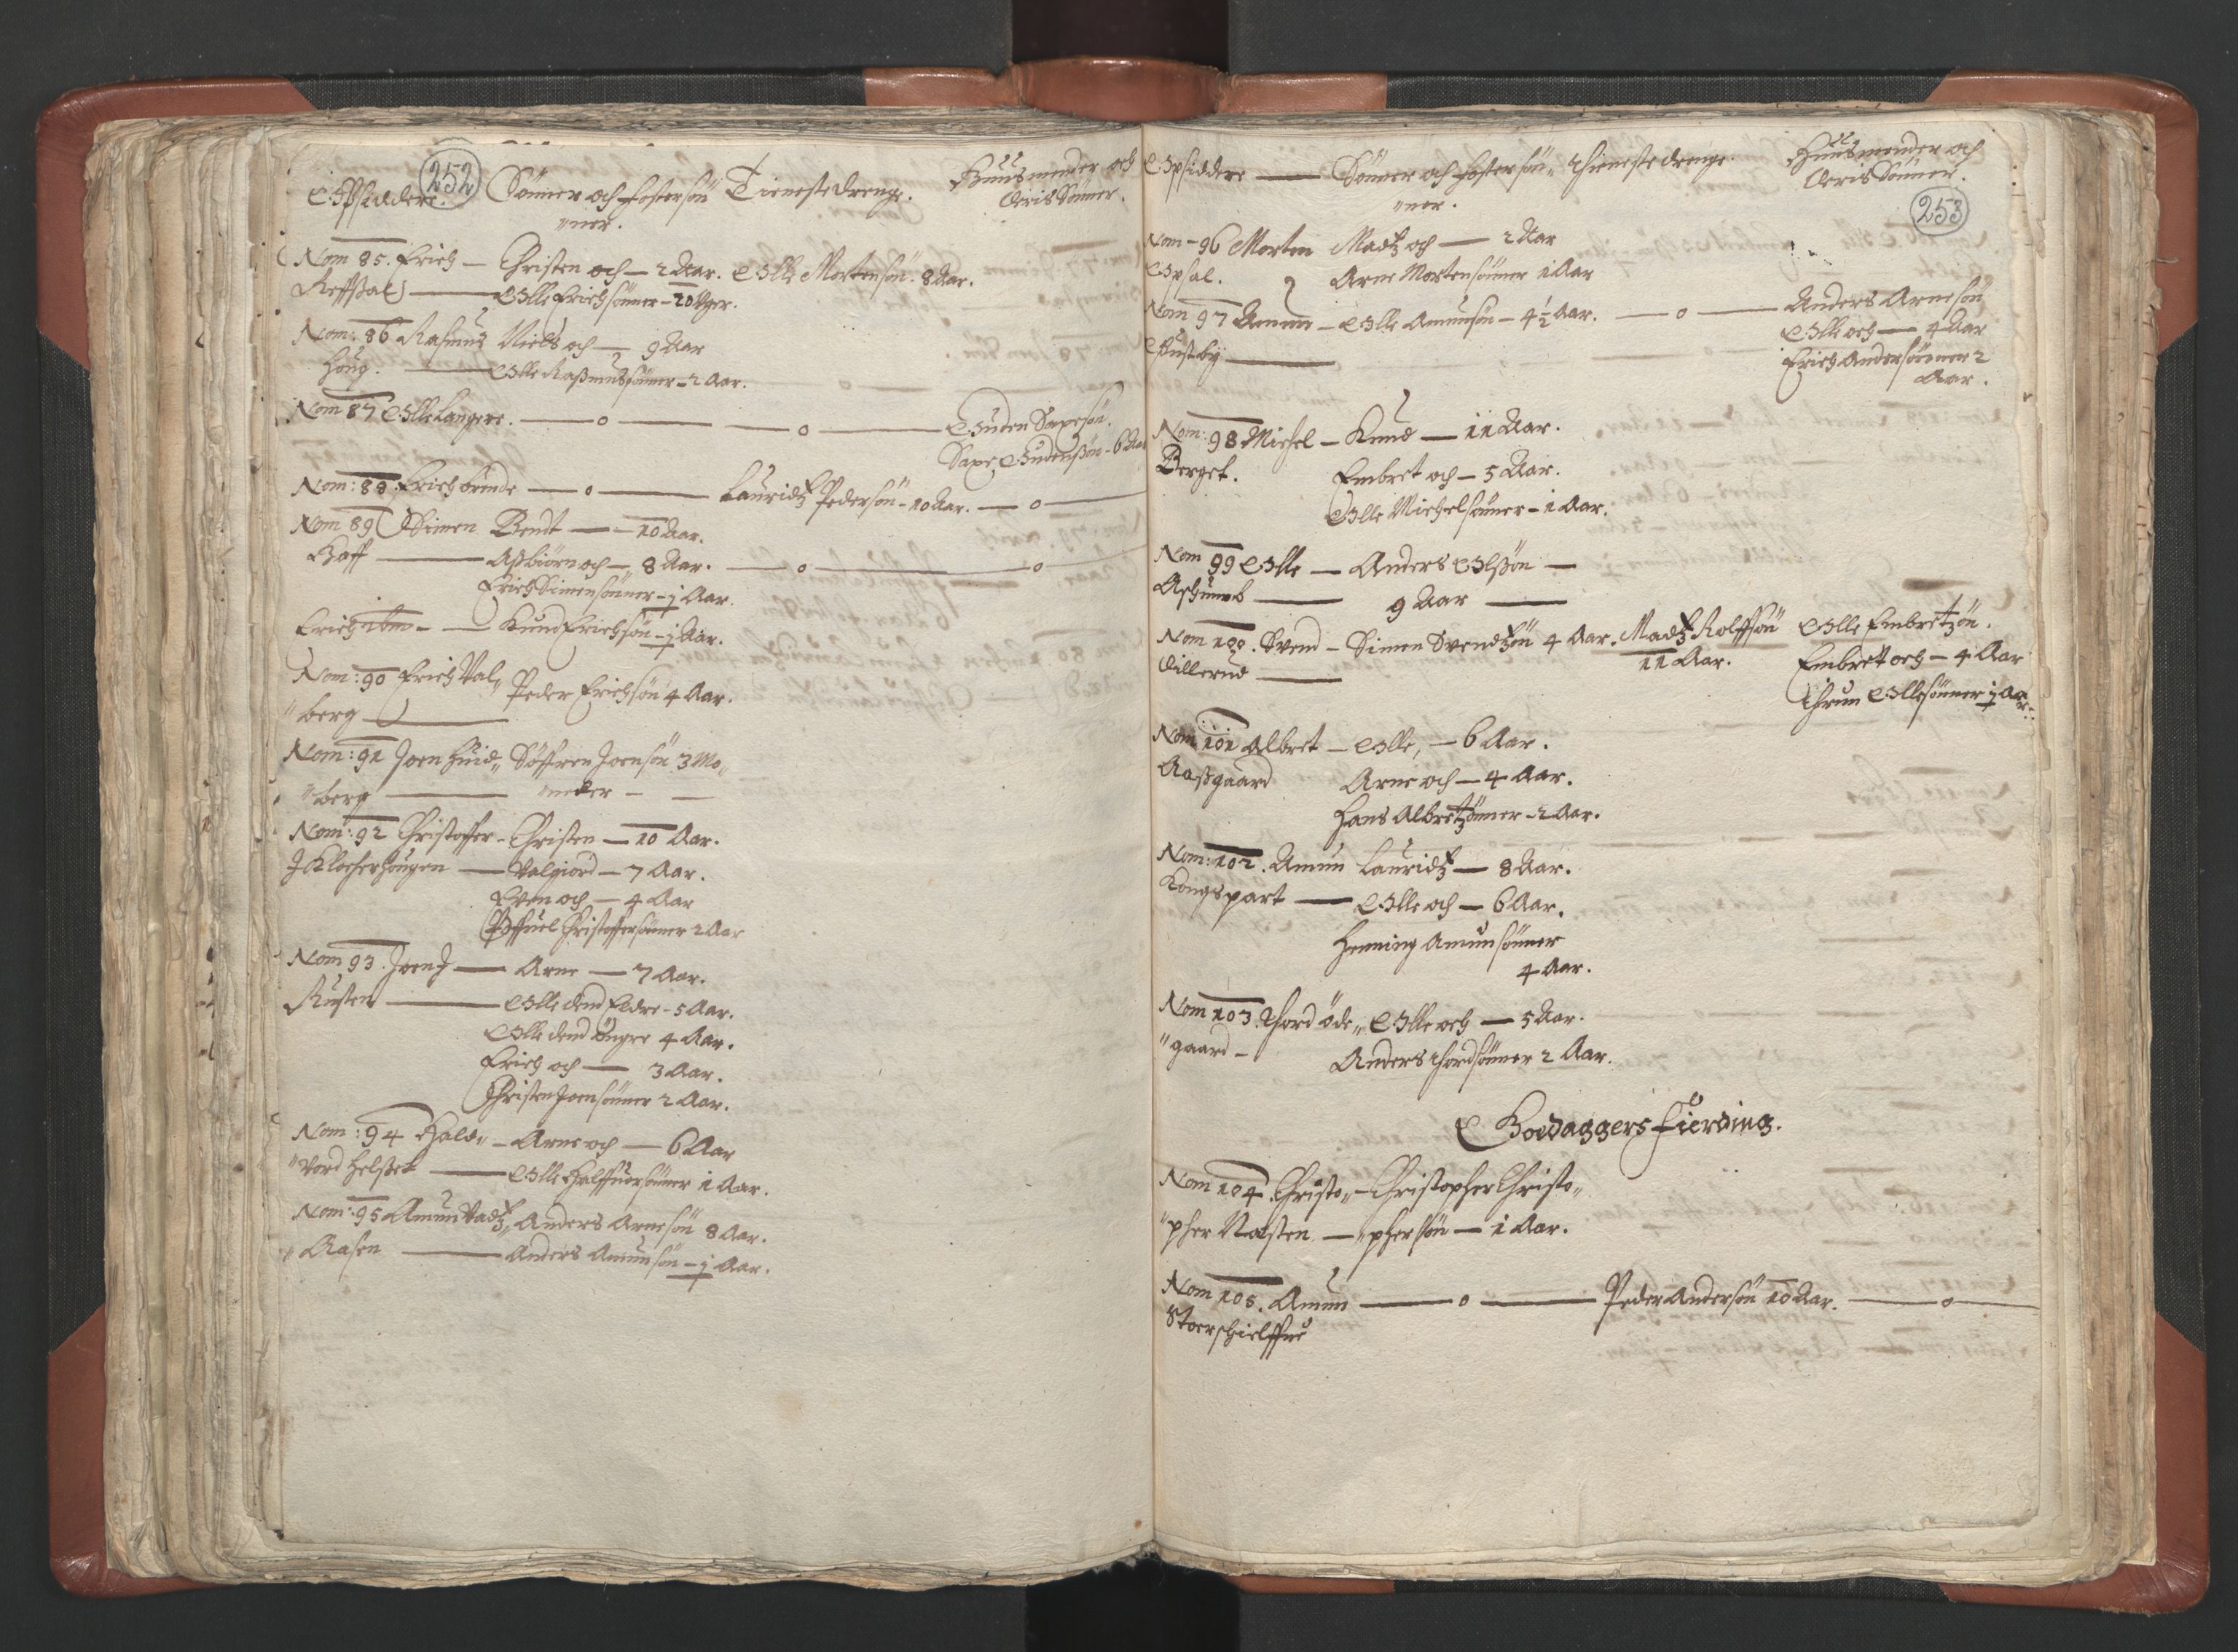 252
Opsiddere. Sönner och fostersön„ Tienestedrenge. Huusmender och
„ner. deris Sönner.
Nom 85. Erich — Christen och — 2 Aar. Olle Mortensön. 8 Aar.
Reffßal — Olle Erichsönner — 20 Uger.
Nom: 86 Rasmus Niels och — 9 Aar
Houg. — Olle Raßmusßönner — 2 Aar.
Nom 87 Olle Langere. — o — — o — Guden Saxesön.
Saxe Gudenßön — 6 Aar
Nom: 88. Erich brinde — o — Lauridtz Pedersön — 10 Aar. — o —
Nom 89 Simen Bendt — 10 Aar.
Hoff — Aßbiörn och — 8 Aar. — o — o
Erich Simensönner — 1 Aar.
Erich ibm — — Knud Erichsön — 1 Aar.
Nom: 90 Erich Val„ Peder Erichsön 4 Aar.
„berg —
Nom: 91 Joen Huid„ Söffren Joensön 3 Mo„
„berg — „neder — —
Nom: 92 Christoffer — Christen — 10 Aar.
J Klocherhougen — Valgiord — 7 Aar.
Even och — 4 Aar
Poffuel Christoffersönner 2 Aar
Nom 93. Joen J — Arne — 7 Aar.
Rusten — Olle dend Eldre — 5 Aar.
Olle dend Üngre 4 Aar.
Erich och — 3 Aar.
Christen Joensönner 2 Aar.
Nom: 94 Hald„ — Arne och — 6 Aar
„vord Helßet — Olle Halffuorsönner 1 Aar.
Nom: 95 Amun Vadtz„ Anders Arnesön 8 Aar.
„Aasen — Anders Amunsön — 1 Aar.
253
Opsiddere — Sönner och fostersön„ Thienestedrenge. Huusmender och
„ner. deris Sönner.
Nom — 96 Morten Madtz och — 2 Aar
Opsal. Arne Mortensönner 1 Aar
Nom 97 Amun — Olle Amunsön — 4½ Aar. — o — Anders Arnesön
Olle och — 4 Aar
Erich Andersönner 2
Aar.
Nom: 98 Michel — Knud — 11 Aar.
Berget. Embret och — 5 Aar.
Olle Michelsönner — 1 Aar.
Nom 99 Olle — Anders Olßön —
— 9 Aar —
Nom 100. Svend — Simen Svendtzön 4 Aar. Madtz Rolffsön Olle Embretzön.
Dillerud — 11 Aar. Embret och — 4 Aar
Thrun Ollesönner 1 Aar.
Nom 101 Albret — Olle, — 6 Aar.
Aaßgaard Arne och — 4 Aar.
Hans Albretzönner — 2 Aar.
Nom: 102. Amun Lauridtz — 8 Aar.
Kongspart — Olle och — 6 Aar.
Henning Amunsönner
4 Aar.
Nom 103. Thord öde„ Olle och — 5 Aar.
„gaard — Anders Thordsönner 2 Aar.
Boedaggers Fierding.
Nom 104. Christo„ — Christopher Christo„
„pher Næsten — „phersön — 1 Aar.
Nom 105. Amun — o — Peder Andersön 10 Aar. — o —
Storschielffue